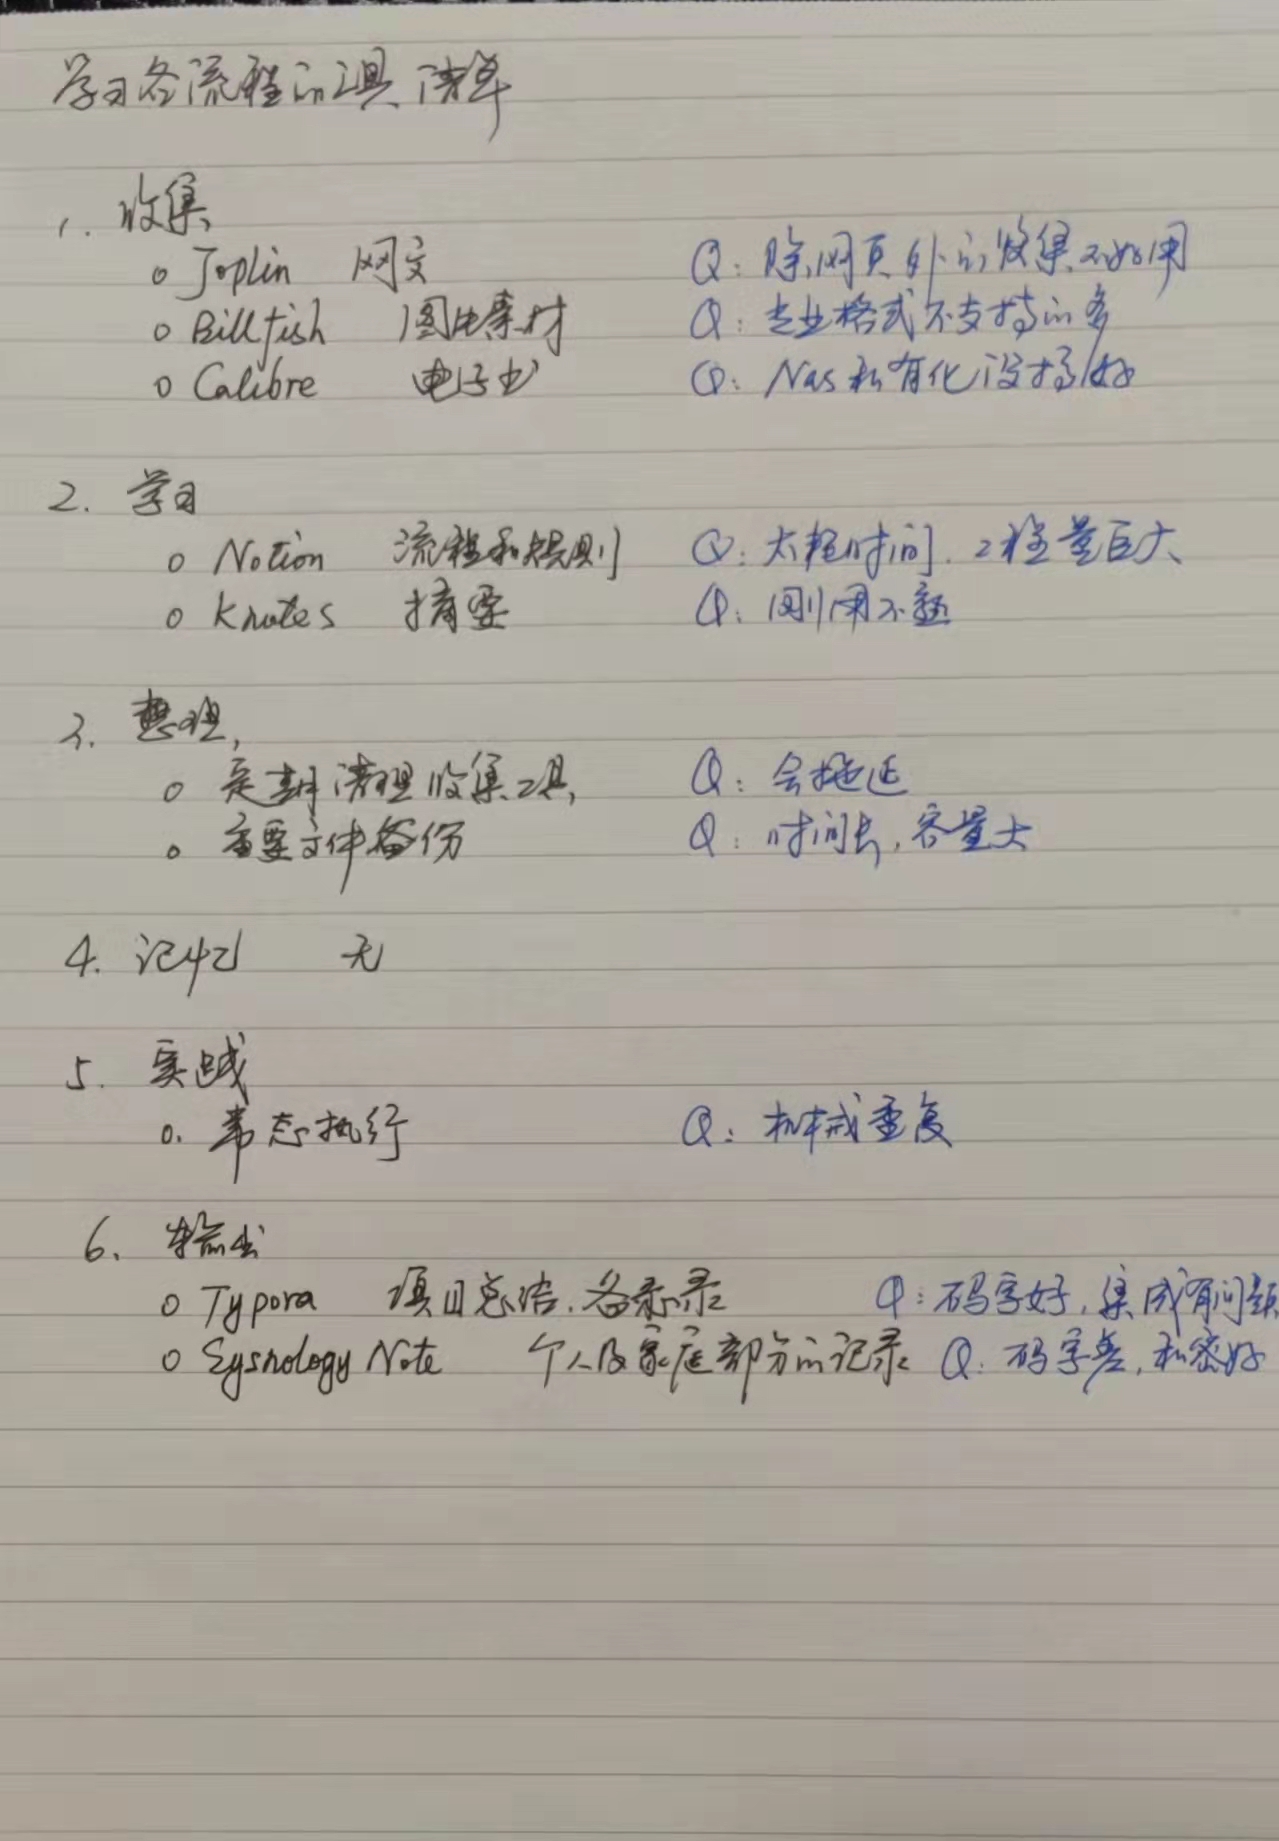 学习各流程的工具清单
1. 收集
o Joplin 网文 Q: 除网页外的收集不好用
o Billfish 图片素材 Q: 专业格式不支持的多
o Calibre 电子书 Q: Nas私有化没搞好
2. 学习
o Notion 流程和规则 Q: 太耗时间. 工程量巨大
o Knotes 摘要 Q: 刚用不熟
3. 整理
o 定期清理收集工具 Q: 会拖延
o 重要文件备份 Q: 时间长, 容量大
4. 记忆 无
5. 实践
o. 常态执行 Q: 机械重复
6. 输出
o Typora 项目总结. 备忘录 Q: 码字好, 集成有问题
o Sysnology Note 个人及家庭部分的记录 Q: 码字差, 私密好